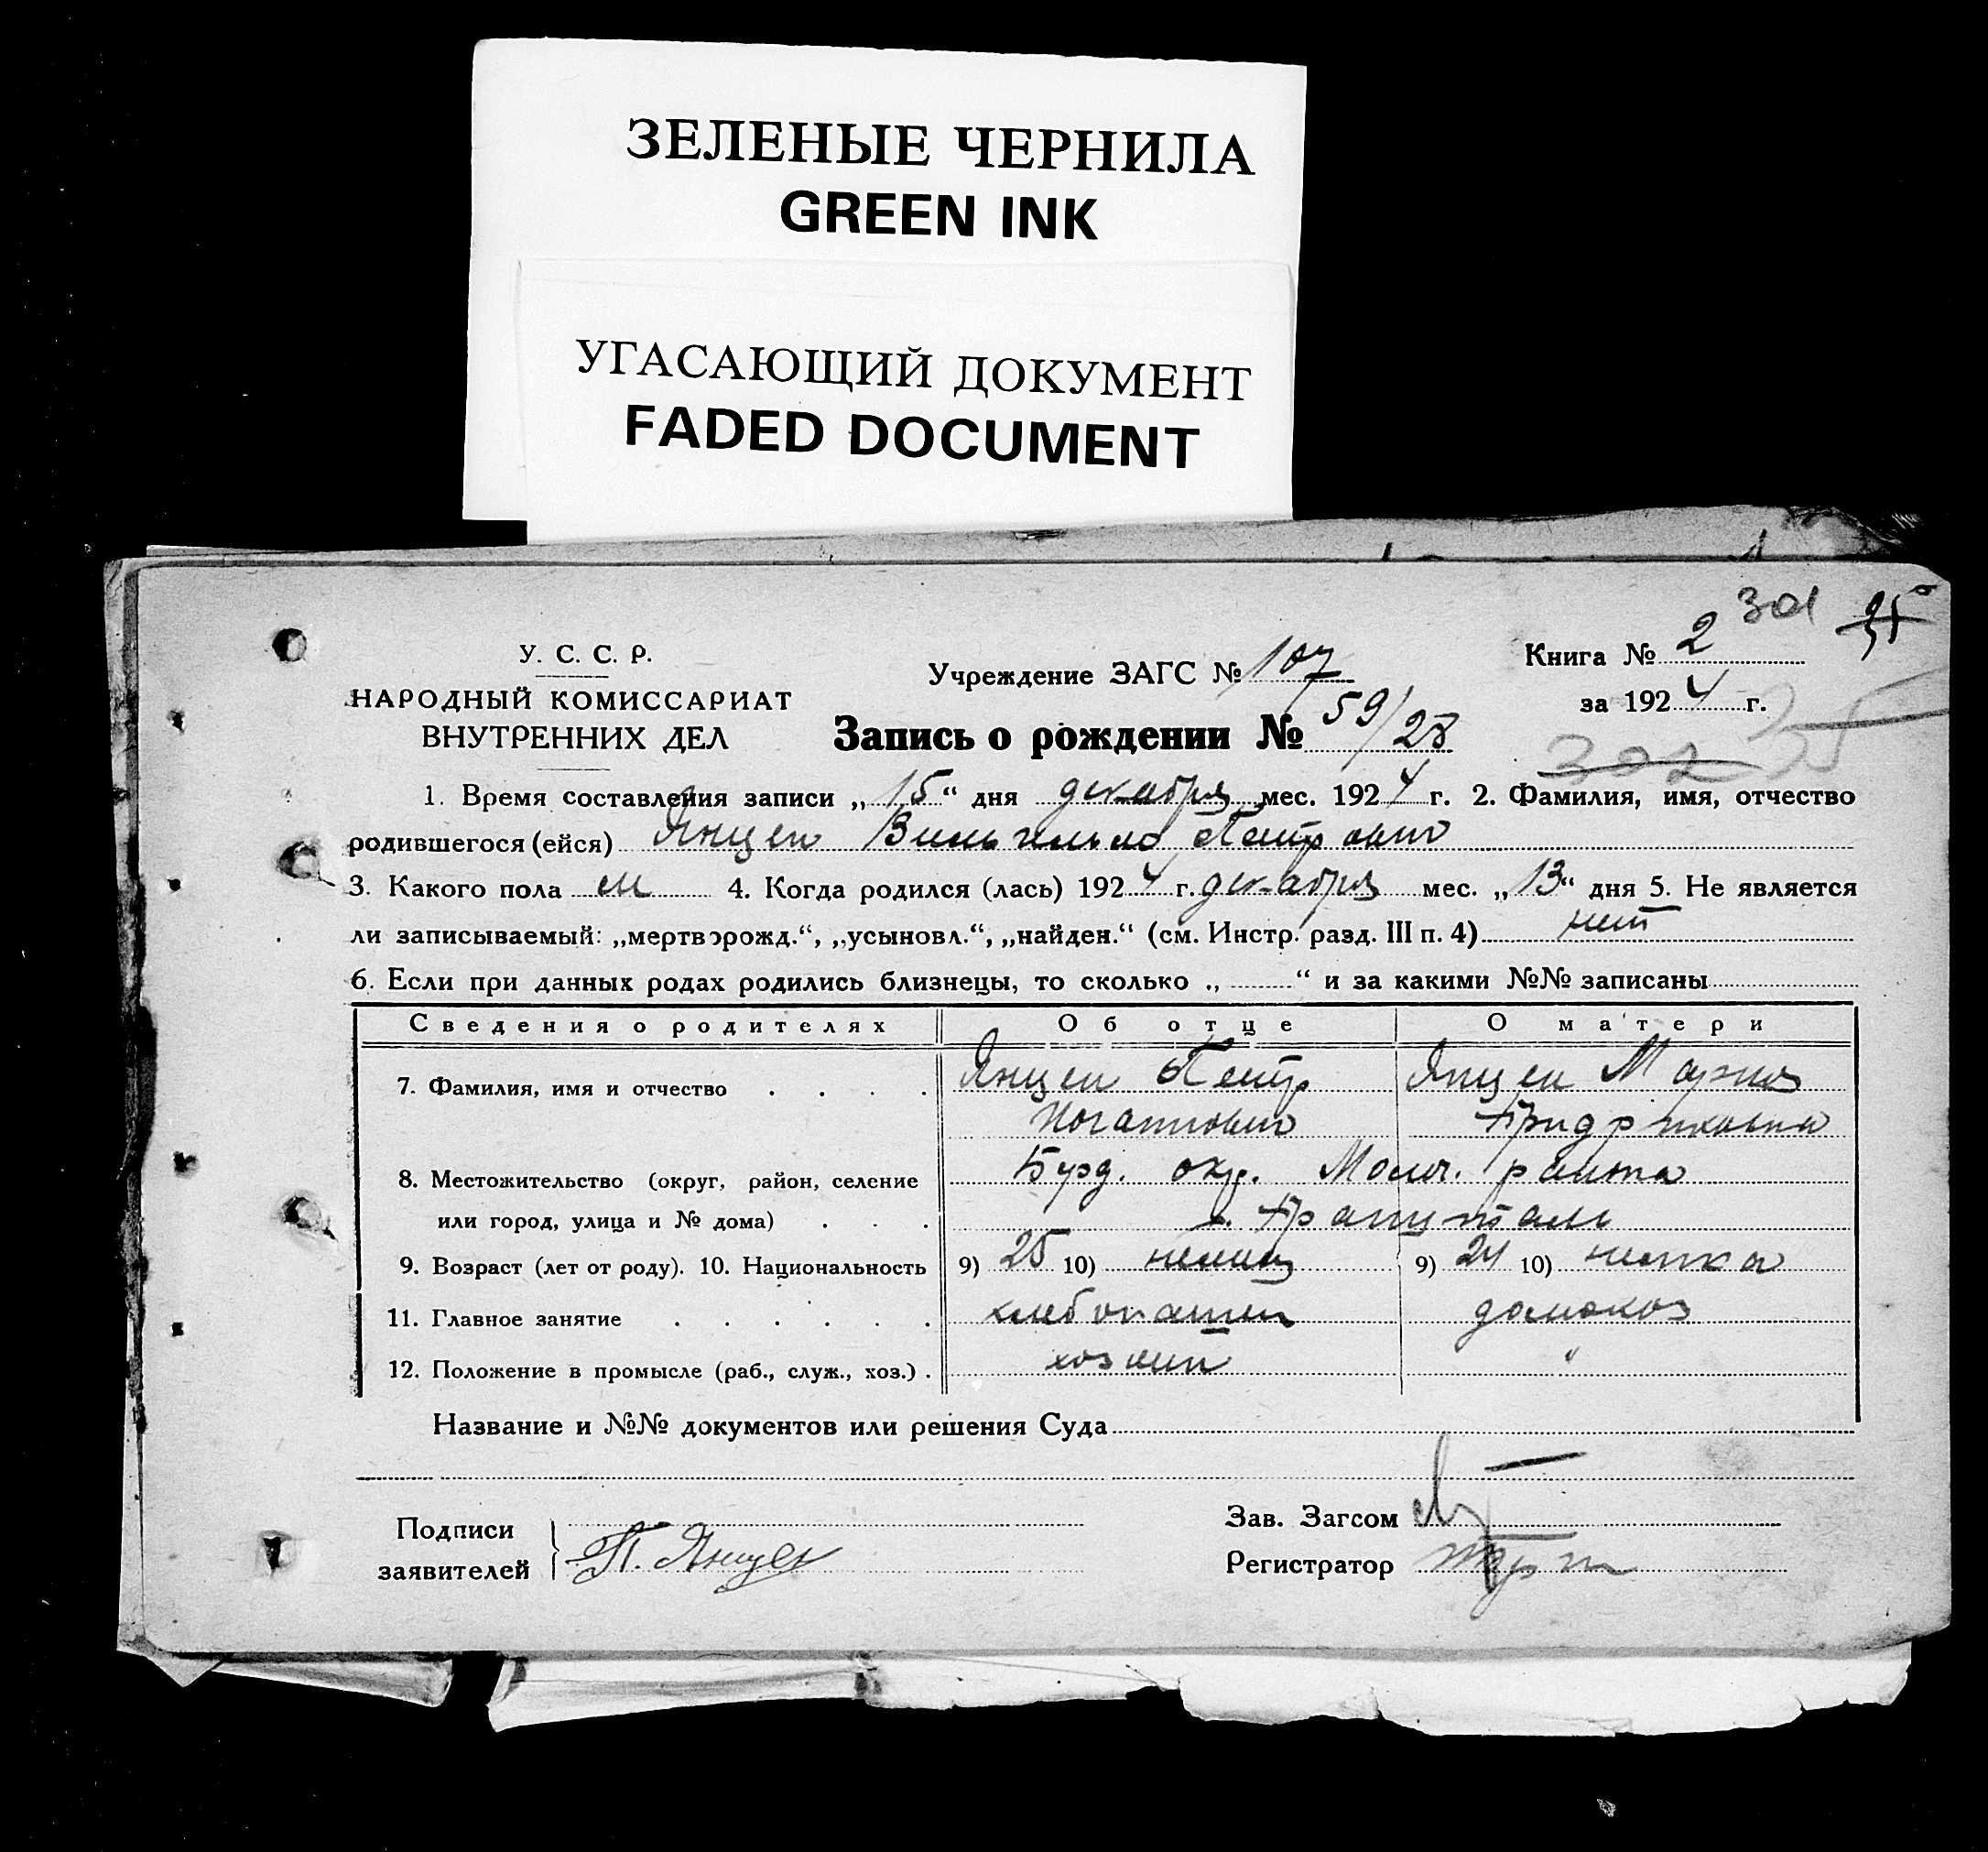 ЗЕЛЕНЫЕ ЧЕРНИЛА
GREEN INK
УГАСАЮЩИЙ ДОКУМЕНТ
FADED DOCUMENT
301
У. С. С. Р.
НАРОДНЫЙ КОМИССАРИАТ
ВНУТРЕННИХ ДЕЛ
Учреждение ЗАГС № 107
Книга № 2
за 1924 г.
Запись о рождении № 59/28
302
1. Время составления записи „15“ дня декабря мес. 1924 г. 2. Фамилия, имя, отчество
родившегося (ейся) Янцен Вильгельм Петрович
3. Какого пола м 4. Когда родился (лась) 1924 г. декабря мес. „13“ дня 5. Не является
ли записываемый: „мертворожд.“, „усыновл.“, „найден.“ (см. Инстр. разд. III п. 4) нет
6. Если при данных родах родились близнецы, то сколько „ “ и за какими №№ записаны
Сведения о родителях Об отце О матери
7. Фамилия, имя и отчество . . . . Янцен Петр Янцен Мария
Иоганнович Фридриховна
8. Местожительство (округ, район, селение Бурд. окр. Молч. района
или город, улица и № дома) . . .
9. Возраст (лет от роду). 10. Национальность 9) 25 10) немец 9) 24 10) немка
11. Главное занятие . . . . . . хлебопашец домохоз
12. Положение в промысле (раб., служ., хоз.) . хозяин "
Название и №№ документов или решения Суда
Подписи
заявителей
П. Янцен
Зав. Загсом
Регистратор